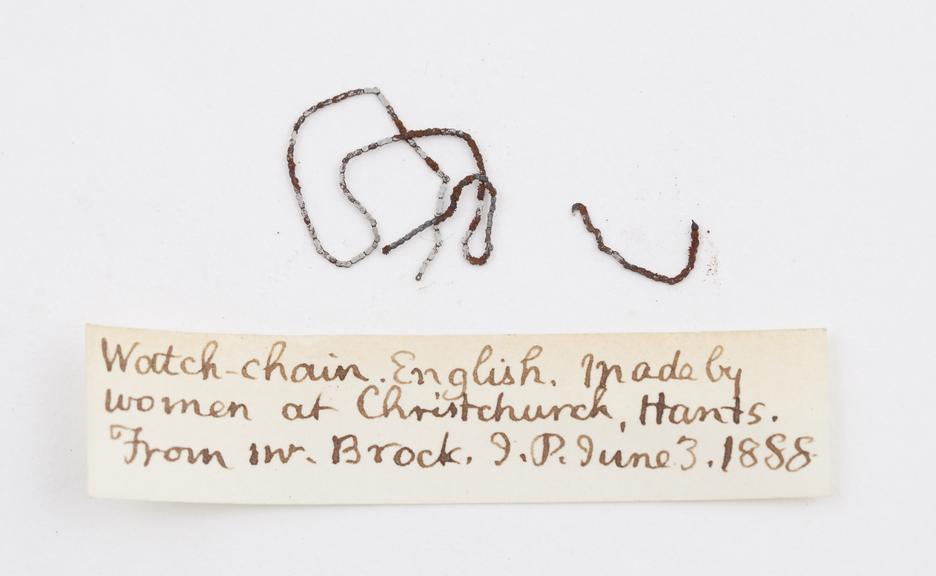 Watch-chain. English. Made by
women at Christchurch, Hants.
From W. Brock. I.P. June 3. 1888